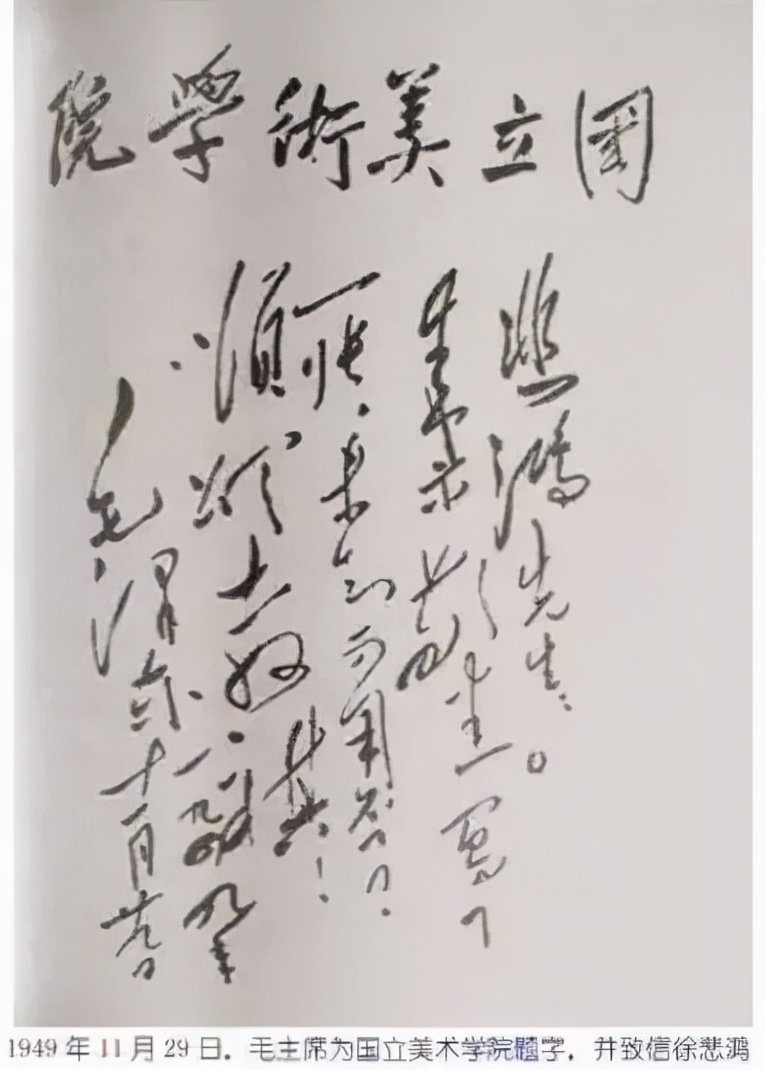 国立美術學院
悲鴻先生：
来示敬悉。写了
一張，未知可用否？
順頌
教祺！
毛澤东
一九四九年
十一月廿九日
1949年11月29日，毛主席为国立美术学院题字，并致信徐悲鸿